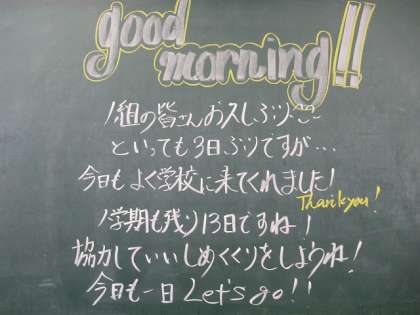 good
morning!!
1組の皆さんお久しぶり
といっても3日ぶりですが…
今日もよく学校に来てくれました!
Thank you!
1学期も残り13日ですね!
協力していいしめくくりをしようね!
今日も一日Let's go!!